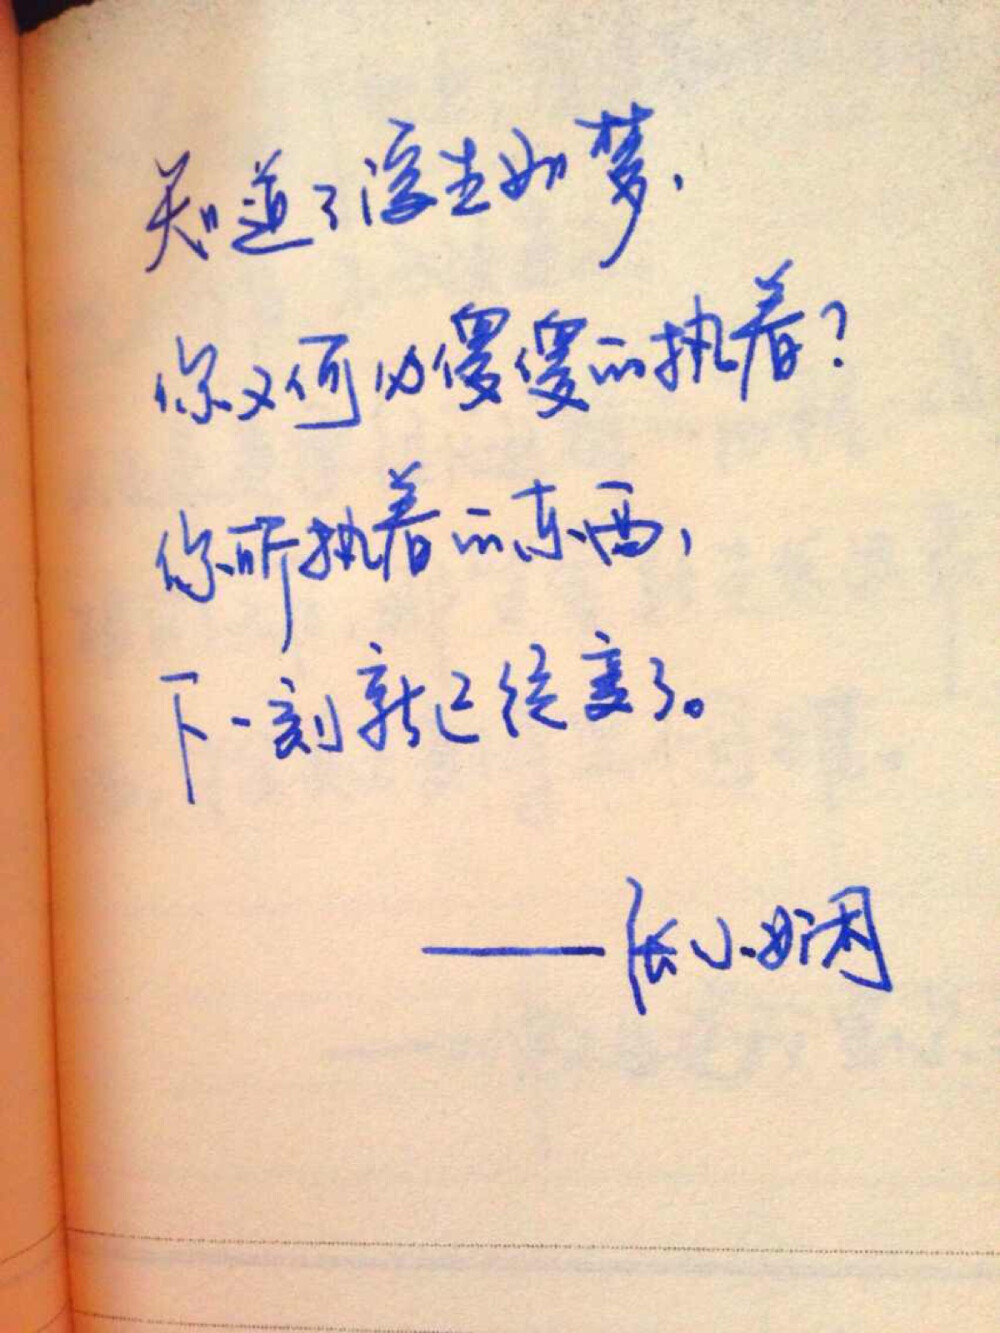 知道了浮生如梦，
你又何必傻傻的执着？
你所执着的东西，
下一刻就已经变了。
——张小娴